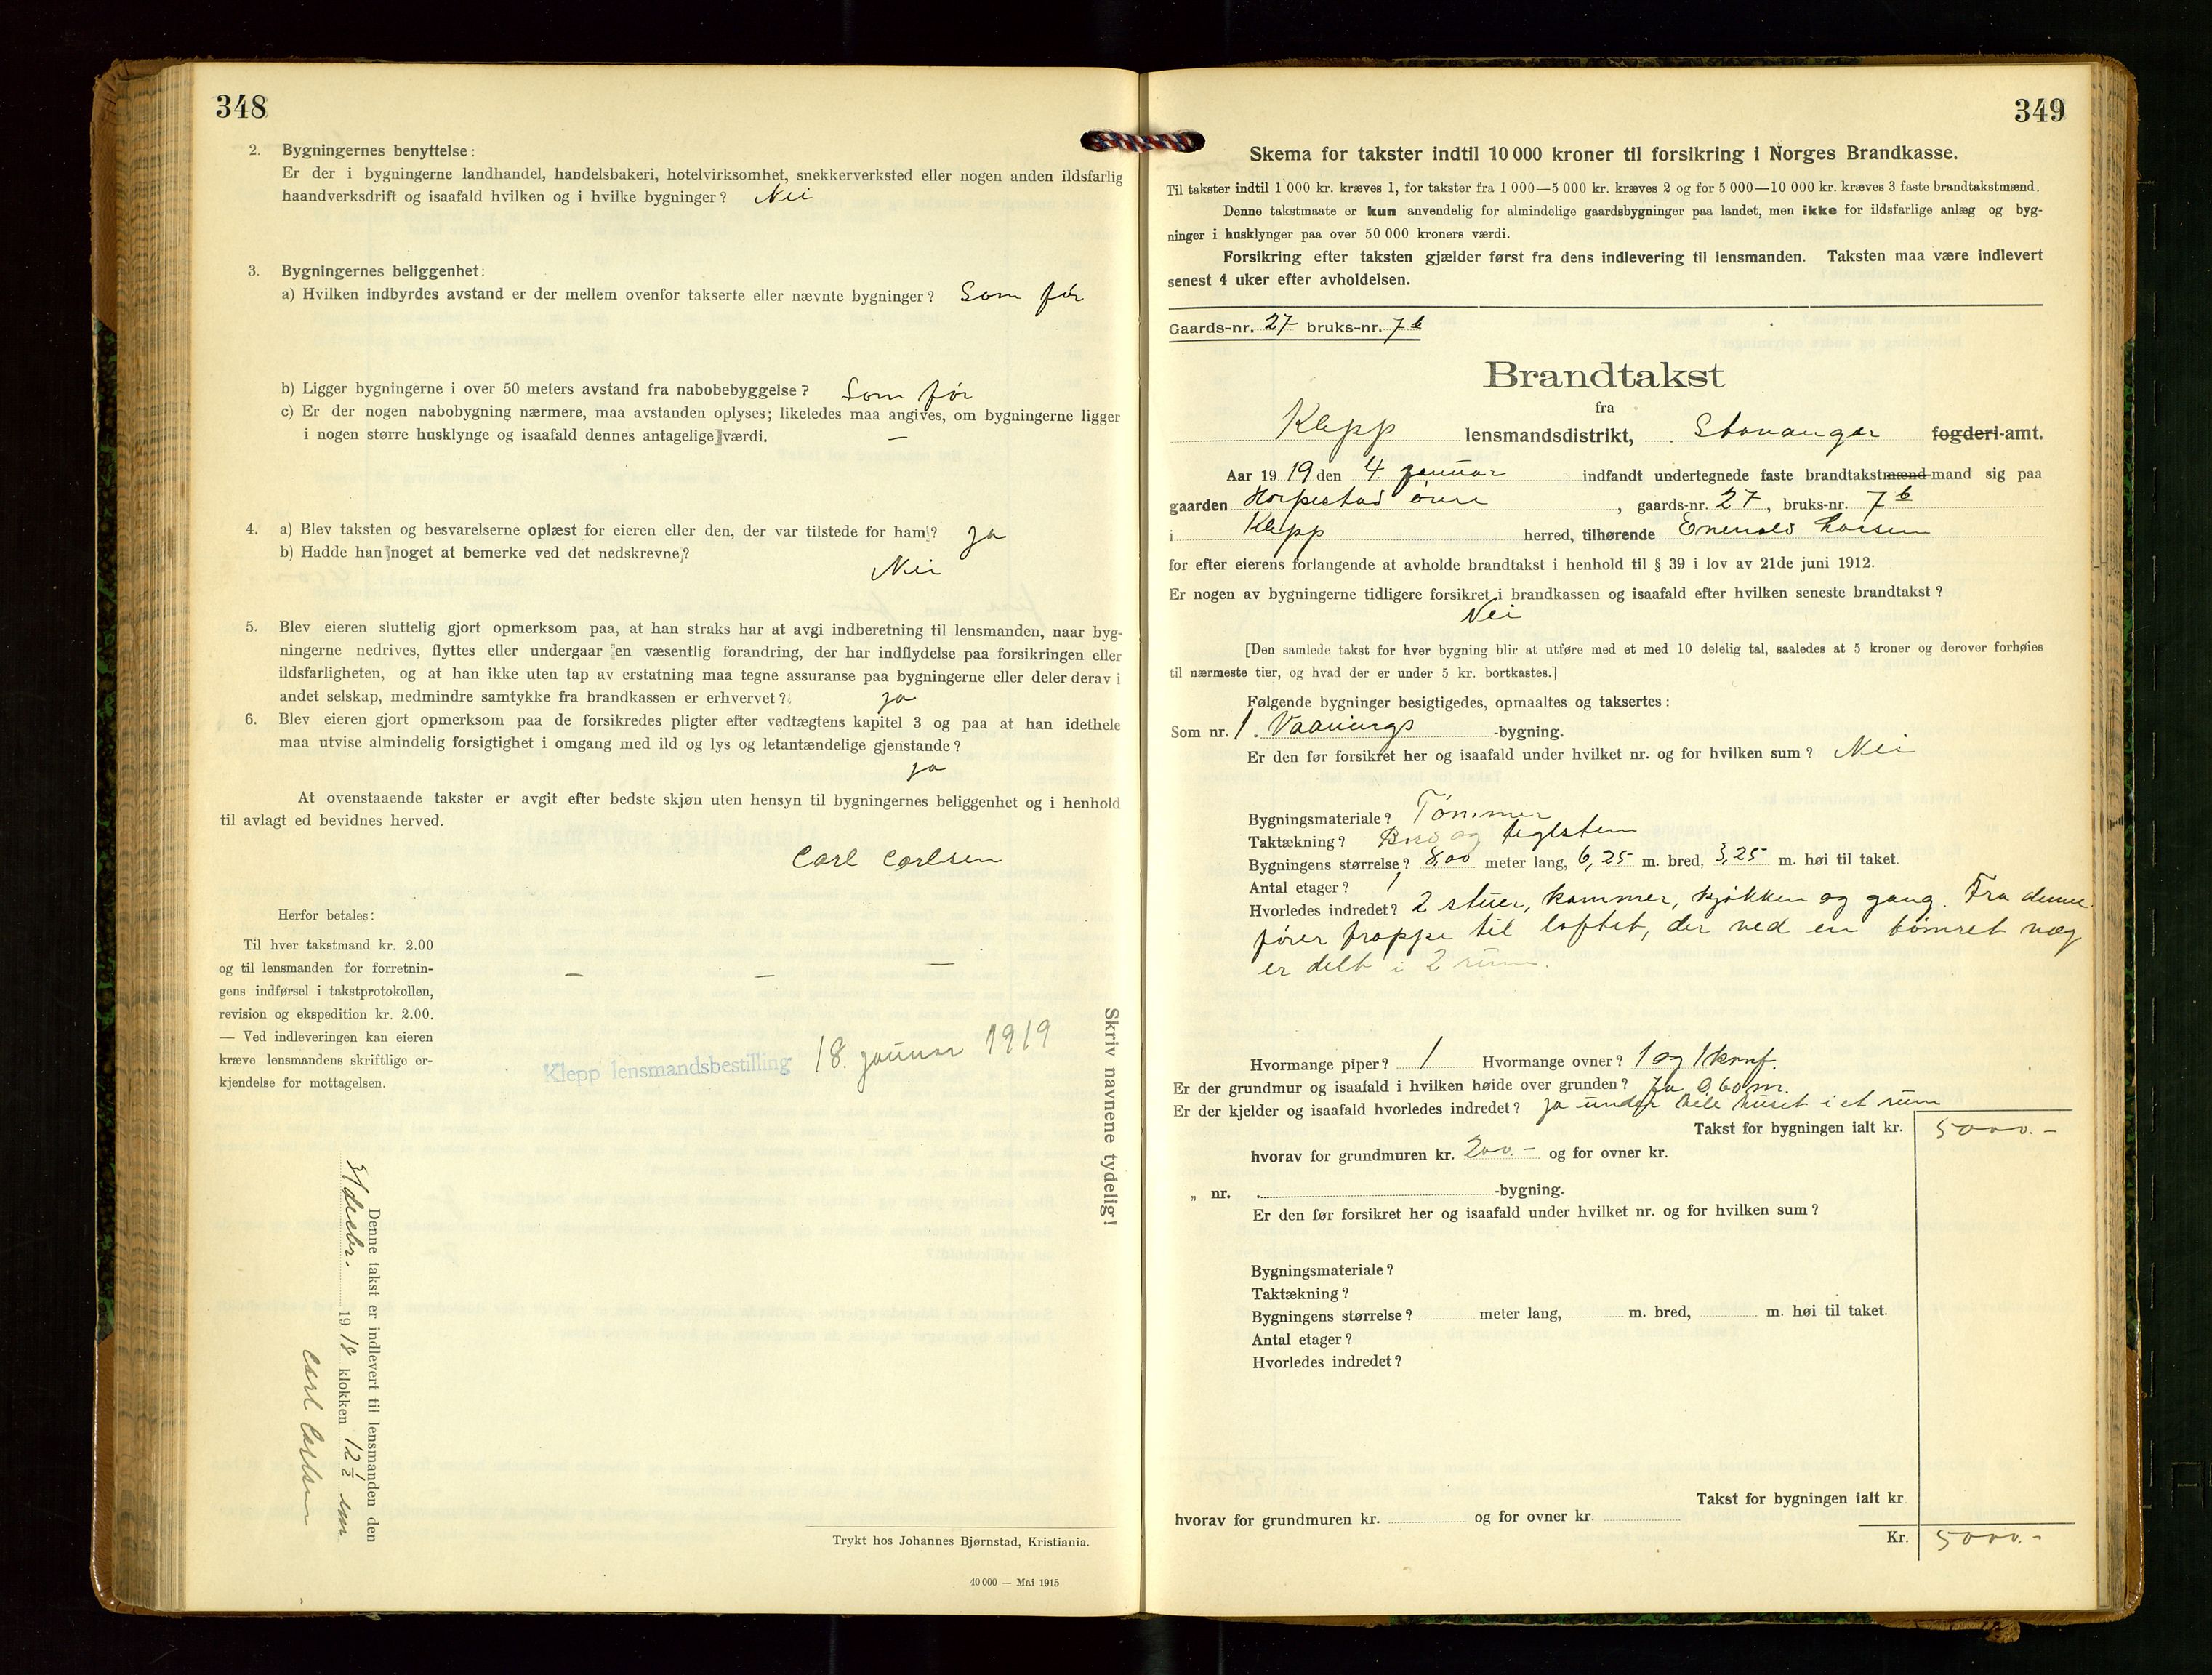 348
2. Bygningernes benyttelse:
Er der i bygningerne landhandel, handelsbakeri, hotelvirksomhet, snekkerverksted eller nogen anden ildsfarlig
haandverksdrift og isaafald hvilken og i hvilke bygninger? Nei
3. Bygningernes beliggenhet:
a) Hvilken indbyrdes avstand er der mellem ovenfor takserte eller nævnte bygninger? Som før
b) Ligger bygningerne i over 50 meters avstand fra nabobebyggelse? Som før
c) Er der nogen nabobygning nærmere, maa avstanden oplyses; likeledes maa angives, om bygningerne ligger
i nogen større husklynge og isaafald dennes antagelige værdi. —
4. a) Blev taksten og besvarelserne oplæst for eieren eller den, der var tilstede for ham? Ja
b) Hadde han noget at bemerke ved det nedskrevne?
Nei
5. Blev eieren sluttelig gjort opmerksom paa, at han straks har at avgi indberetning til lensmanden, naar byg-
ningerne nedrives, flyttes eller undergaar en væsentlig forandring, der har indflydelse paa forsikringen eller
ildsfarligheten, og at han ikke uten tap av erstatning maa tegne assuranse paa bygningerne eller deler derav i
andet selskap, medmindre samtykke fra brandkassen er erhvervet? Ja
6. Blev eieren gjort opmerksom paa de forsikredes pligter efter vedtægtens kapitel 3 og paa at han idethele
maa utvise almindelig forsigtighet i omgang med ild og lys og letantændelige gjenstande?
Ja
At ovenstaaende takster er avgit efter bedste skjøn uten hensyn til bygningernes beliggenhet og i henhold
til avlagt ed bevidnes herved.
Carl Carlsen
Herfor betales:
Til hver takstmand kr. 2.00
og til lensmanden for forretnin-
gens indførsel i takstprotokollen,
revision og ekspedition kr. 2.00.
— Ved indleveringen kan eieren
kræve lensmandens skriftlige er-
kjendelse for mottagelsen.
— — —
Klepp lensmandsbestilling 18. januar 1919
Skriv navnene tydelig!
Denne takst er indlevert til lensmanden den
31 decbr. 1918 klokken 12 1/2 em
Carl Carlsen
Trykt hos Johannes Bjørnstad, Kristiania.
40 000 — Mai 1915
349
Skema for takster indtil 10 000 kroner til forsikring i Norges Brandkasse.
Til takster indtil 1 000 kr. kræves 1, for takster fra 1 000—5 000 kr. kræves 2 og for 5 000—10 000 kr. kræves 3 faste brandtakstmænd.
Denne takstmaate er kun anvendelig for almindelige gaardsbygninger paa landet, men ikke for ildsfarlige anlæg og byg-
ninger i husklynger paa over 50 000 kroners værdi.
Forsikring efter taksten gjælder først fra dens indlevering til lensmanden. Taksten maa være indlevert
senest 4 uker efter avholdelsen.
Gaards-nr. 27 bruks-nr. 7 b
Brandtakst
fra
Klepp lensmandsdistrikt, Stavanger fogderi-amt.
Aar 1919 den 4. januar indfandt undertegnede faste brandtakstmænd-mand sig paa
gaarden Horpestad øvre, gaards-nr. 27, bruks-nr. 7 b
i Klepp herred, tilhørende Enevald Larsen
for efter eierens forlangende at avholde brandtakst i henhold til § 39 i lov av 21de juni 1912.
Er nogen av bygningerne tidligere forsikret i brandkassen og isaafald efter hvilken seneste brandtakst?
Nei
[Den samlede takst for hver bygning blir at utføre med et med 10 delelig tal, saaledes at 5 kroner og derover forhøies
til nærmeste tier, og hvad der er under 5 kr. bortkastes.]
Følgende bygninger besigtigedes, opmaaltes og taksertes:
Som nr. 1. Vaanings -bygning.
Er den før forsikret her og isaafald under hvilket nr. og for hvilken sum? Nei
Bygningsmateriale? Tømmer
Taktækning? Bord og teglsten
Bygningens størrelse? 8,00 meter lang, 6,25 m. bred, 3,25 m. høi til taket.
Antal etager? 1
Hvorledes indredet? 2 stuer, kammer, kjøkken og gang. Fra denne
fører trappe til loftet, der ved en tømret væg
er delt i 2 rum.
Hvormange piper? 1 Hvormange ovner? 1 og 1 komf.
Er der grundmur og isaafald i hvilken høide over grunden? Ja 0,60 m.
Er der kjelder og isaafald hvorledes indredet? Ja under hele huset i et rum
Takst for bygningen ialt kr. 5000.-
hvorav for grundmuren kr. 200.- og for ovner kr.
„ nr. . -bygning.
Er den før forsikret her og isaafald under hvilket nr. og for hvilken sum?
Bygningsmateriale?
Taktækning?
Bygningens størrelse? meter lang, m. bred, m. høi til taket.
Antal etager?
Hvorledes indredet?
Takst for bygningen ialt kr
hvorav for grundmuren kr. og for ovner kr.
Kr. 5000.-